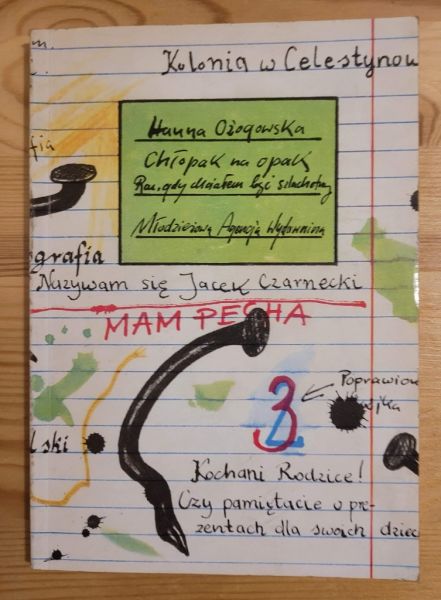 m.
Kolonia w Celestynow
fia
Hanna Ożogowska
Chłopak na opak
Raz, gdy chciałem być szlachetny
Młodzieżowa Agencja Wydawnicza
grafia
Nazywam się Jacek Czarnecki
MAM PECHA
3
Poprawion
ójka
lski
Kochani Rodzice!
Czy pamiętacie o pre-
zentach dla swoich dziec